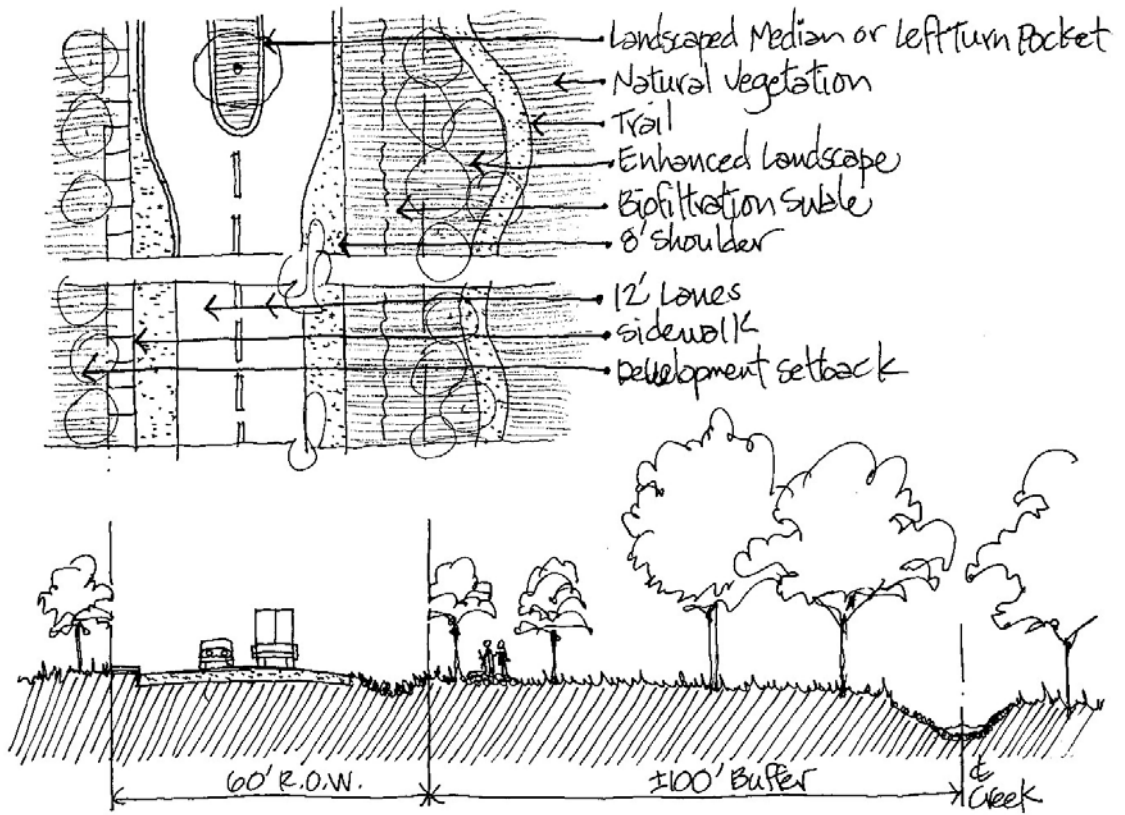 Landscaped Median or Left Turn Pocket
Natural Vegetation
Trail
Enhanced Landscape
Biofiltration Swale
8' Shoulder
12' Lanes
Sidewalk
Development Setback
60' R.O.W.
±100' Buffer
℄
Creek